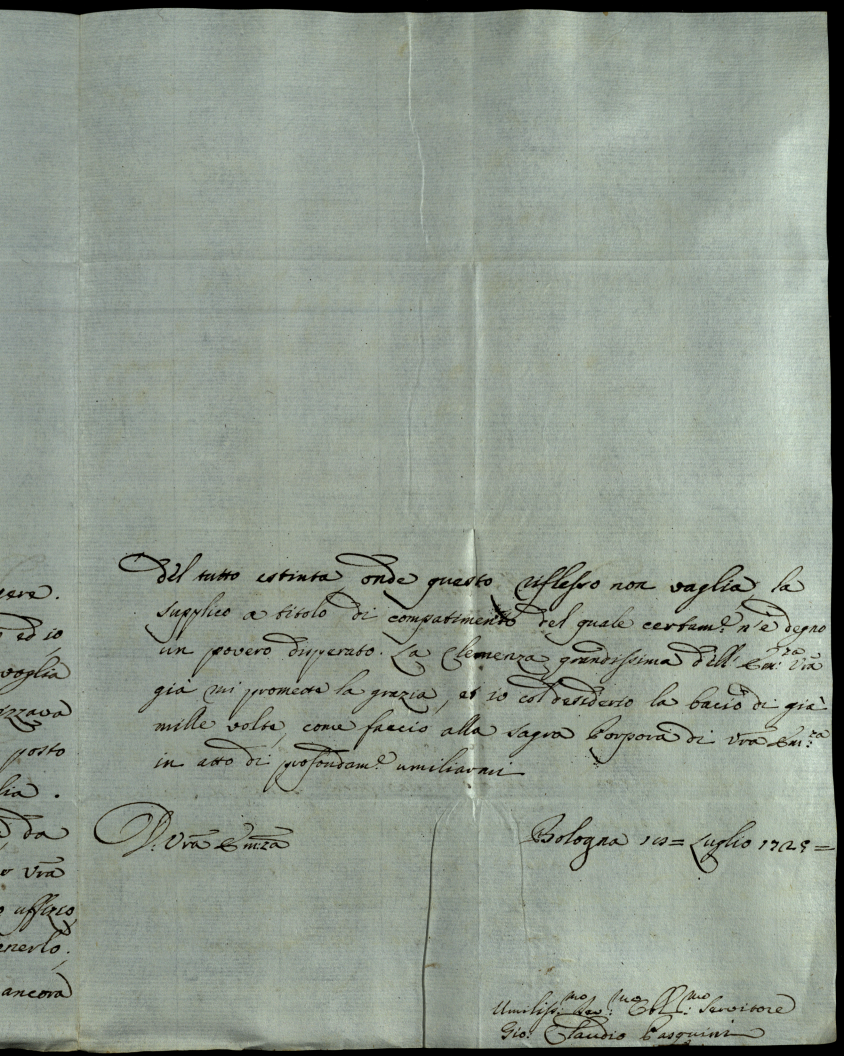 gere.
ed io
voglia
izzava
posto
lia.
da
Vrã
uffizio
enerlo.
ancora
del tutto estinta onde questo riflesso non vaglia, la
supplico a titolo di compatimento del quale certam.e n'è degno
un povero disperato. La Clemenza grandissima dell' Em.za Vrã
già mi promette la grazia, et io col desiderio la bacio di già
mille volte, come faccio alla sagra Porpora di Vrã Em.za
in atto di profondam.e umiliarmi
D. Vrã Em.za
Bologna = Luglio 172 =
Umiliss.mo Dev.mo Obl.mo Servitore
Gio: Claudio Pasquini